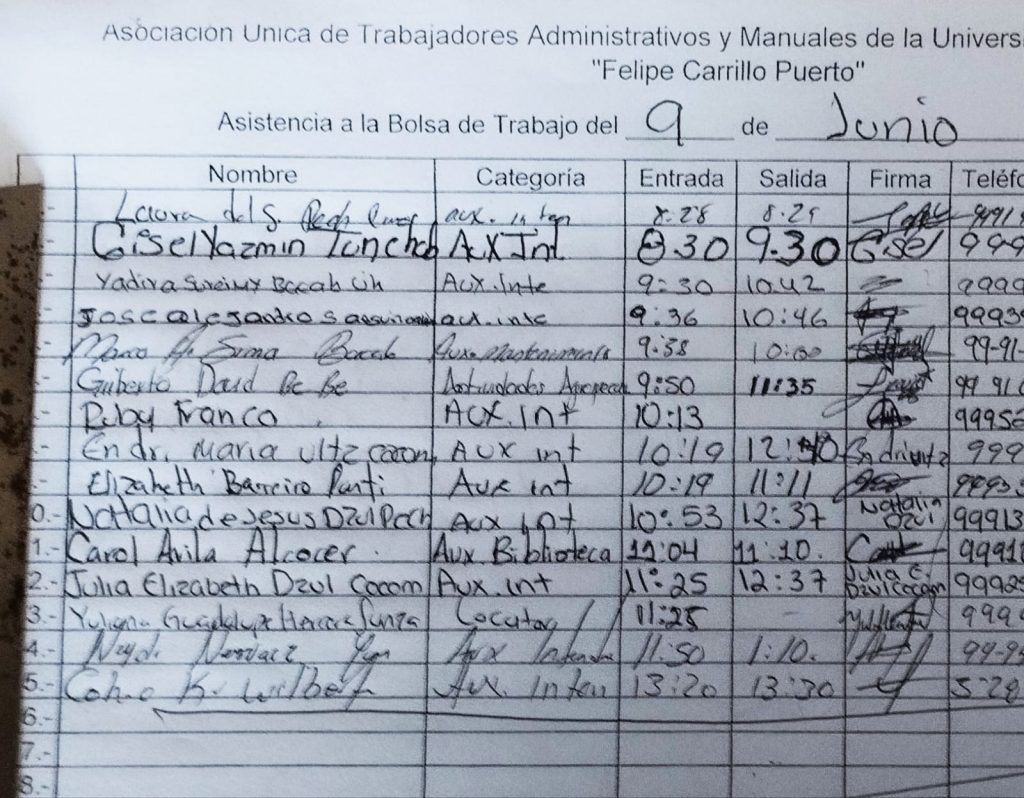 Asociación Unica de Trabajadores Administrativos y Manuales de la Univers
"Felipe Carrillo Puerto"
Asistencia a la Bolsa de Trabajo del 9 de Junio
Nombre Categoría Entrada Salida Firma Teléfo
Laura del S. aux. Inten 8:28 8:29 9991
Gisel Yazmin Tuncheb AUX Int 8:30 9:30 Gisel 999
Yadira Bacab Uh Aux. Inte 9:30 10:42 9999
Jose alejandro aux. inte 9:36 10:46 99939
Bacab Aux. Mantenimiento 9:38 10:00 99-91-
David Be Be 9:50 11:35 99 910
Ruby Franco AUX. Int 10:13 99956
Maria Uitz cocom AUX int 10:19 12:40 999
Elizabeth Barreiro Aux int 10:19 11:11 9993
0.- Nathalia de Jesus Dzul Pech Aux Int 10:53 12:37 Nathalia Dzul 99913
1.- Carol Avila Alcocer Aux. Biblioteca 11:04 11:10. 9991
2.- Julia Elizabeth Dzul Cocom Aux. int 11:25 12:37 Julia E. Dzul Cocom 99925
3.- Guadalupe Herrera Locutor 11:25 - 9999
4.- Aux 11:50 1:10. 99-9
5.- K. Wilbert Aux. Inten 13:20 13:30 5-28
6.-
7.-
8.-